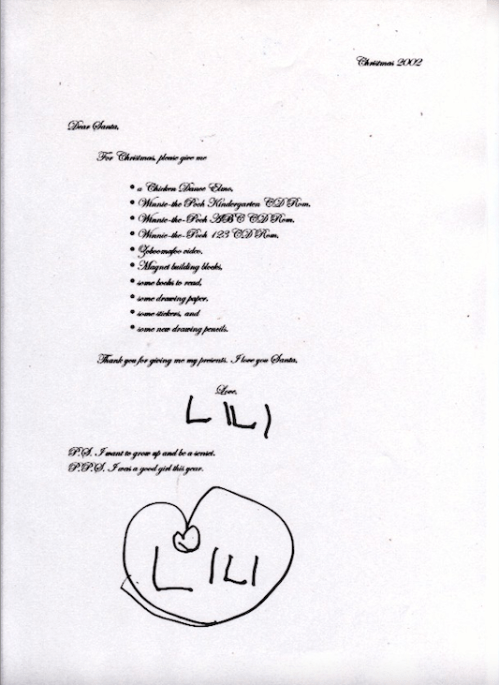 Christmas 2002
Dear Santa,
For Christmas, please give me
* a Chicken Dance Elmo,
* Winnie-the Pooh Kindergarten CD Rom,
* Winnie-the-Pooh ABC CD Rom,
* Winnie-the-Pooh 123 CD Rom,
* Zoboomafoo video,
* Magnet building blocks,
* some books to read,
* some drawing paper,
* some stickers, and
* some new drawing pencils.
Thank you for giving me my presents. I love you Santa.
Love,
LILI
P.S. I want to grow up and be a sensei.
P.P.S. I was a good girl this year.
LILI